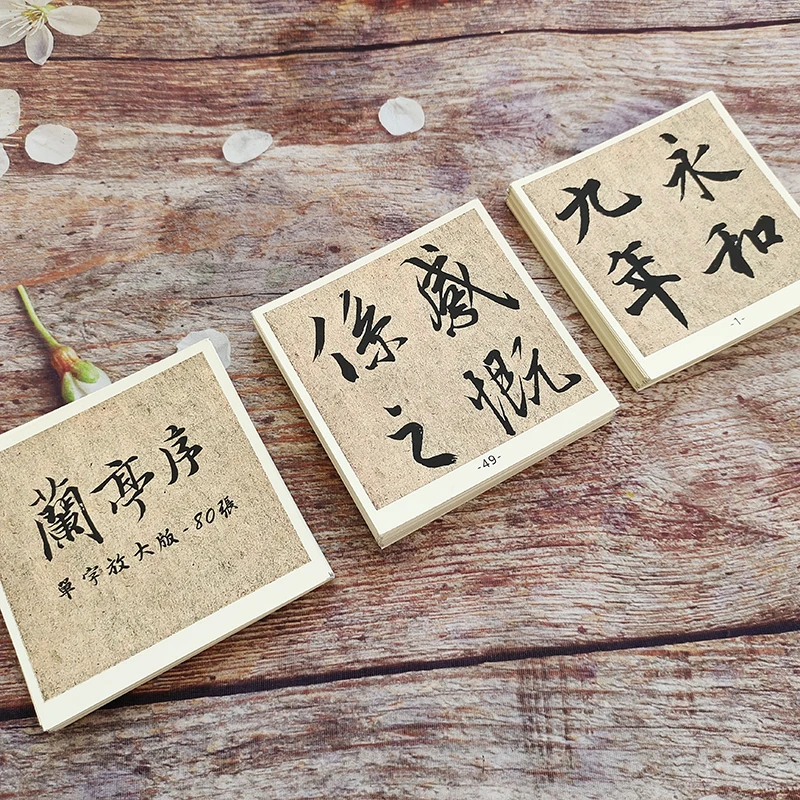 蘭亭序
單字放大版-80張
感慨
係之
-49-
永和
九年
-1-